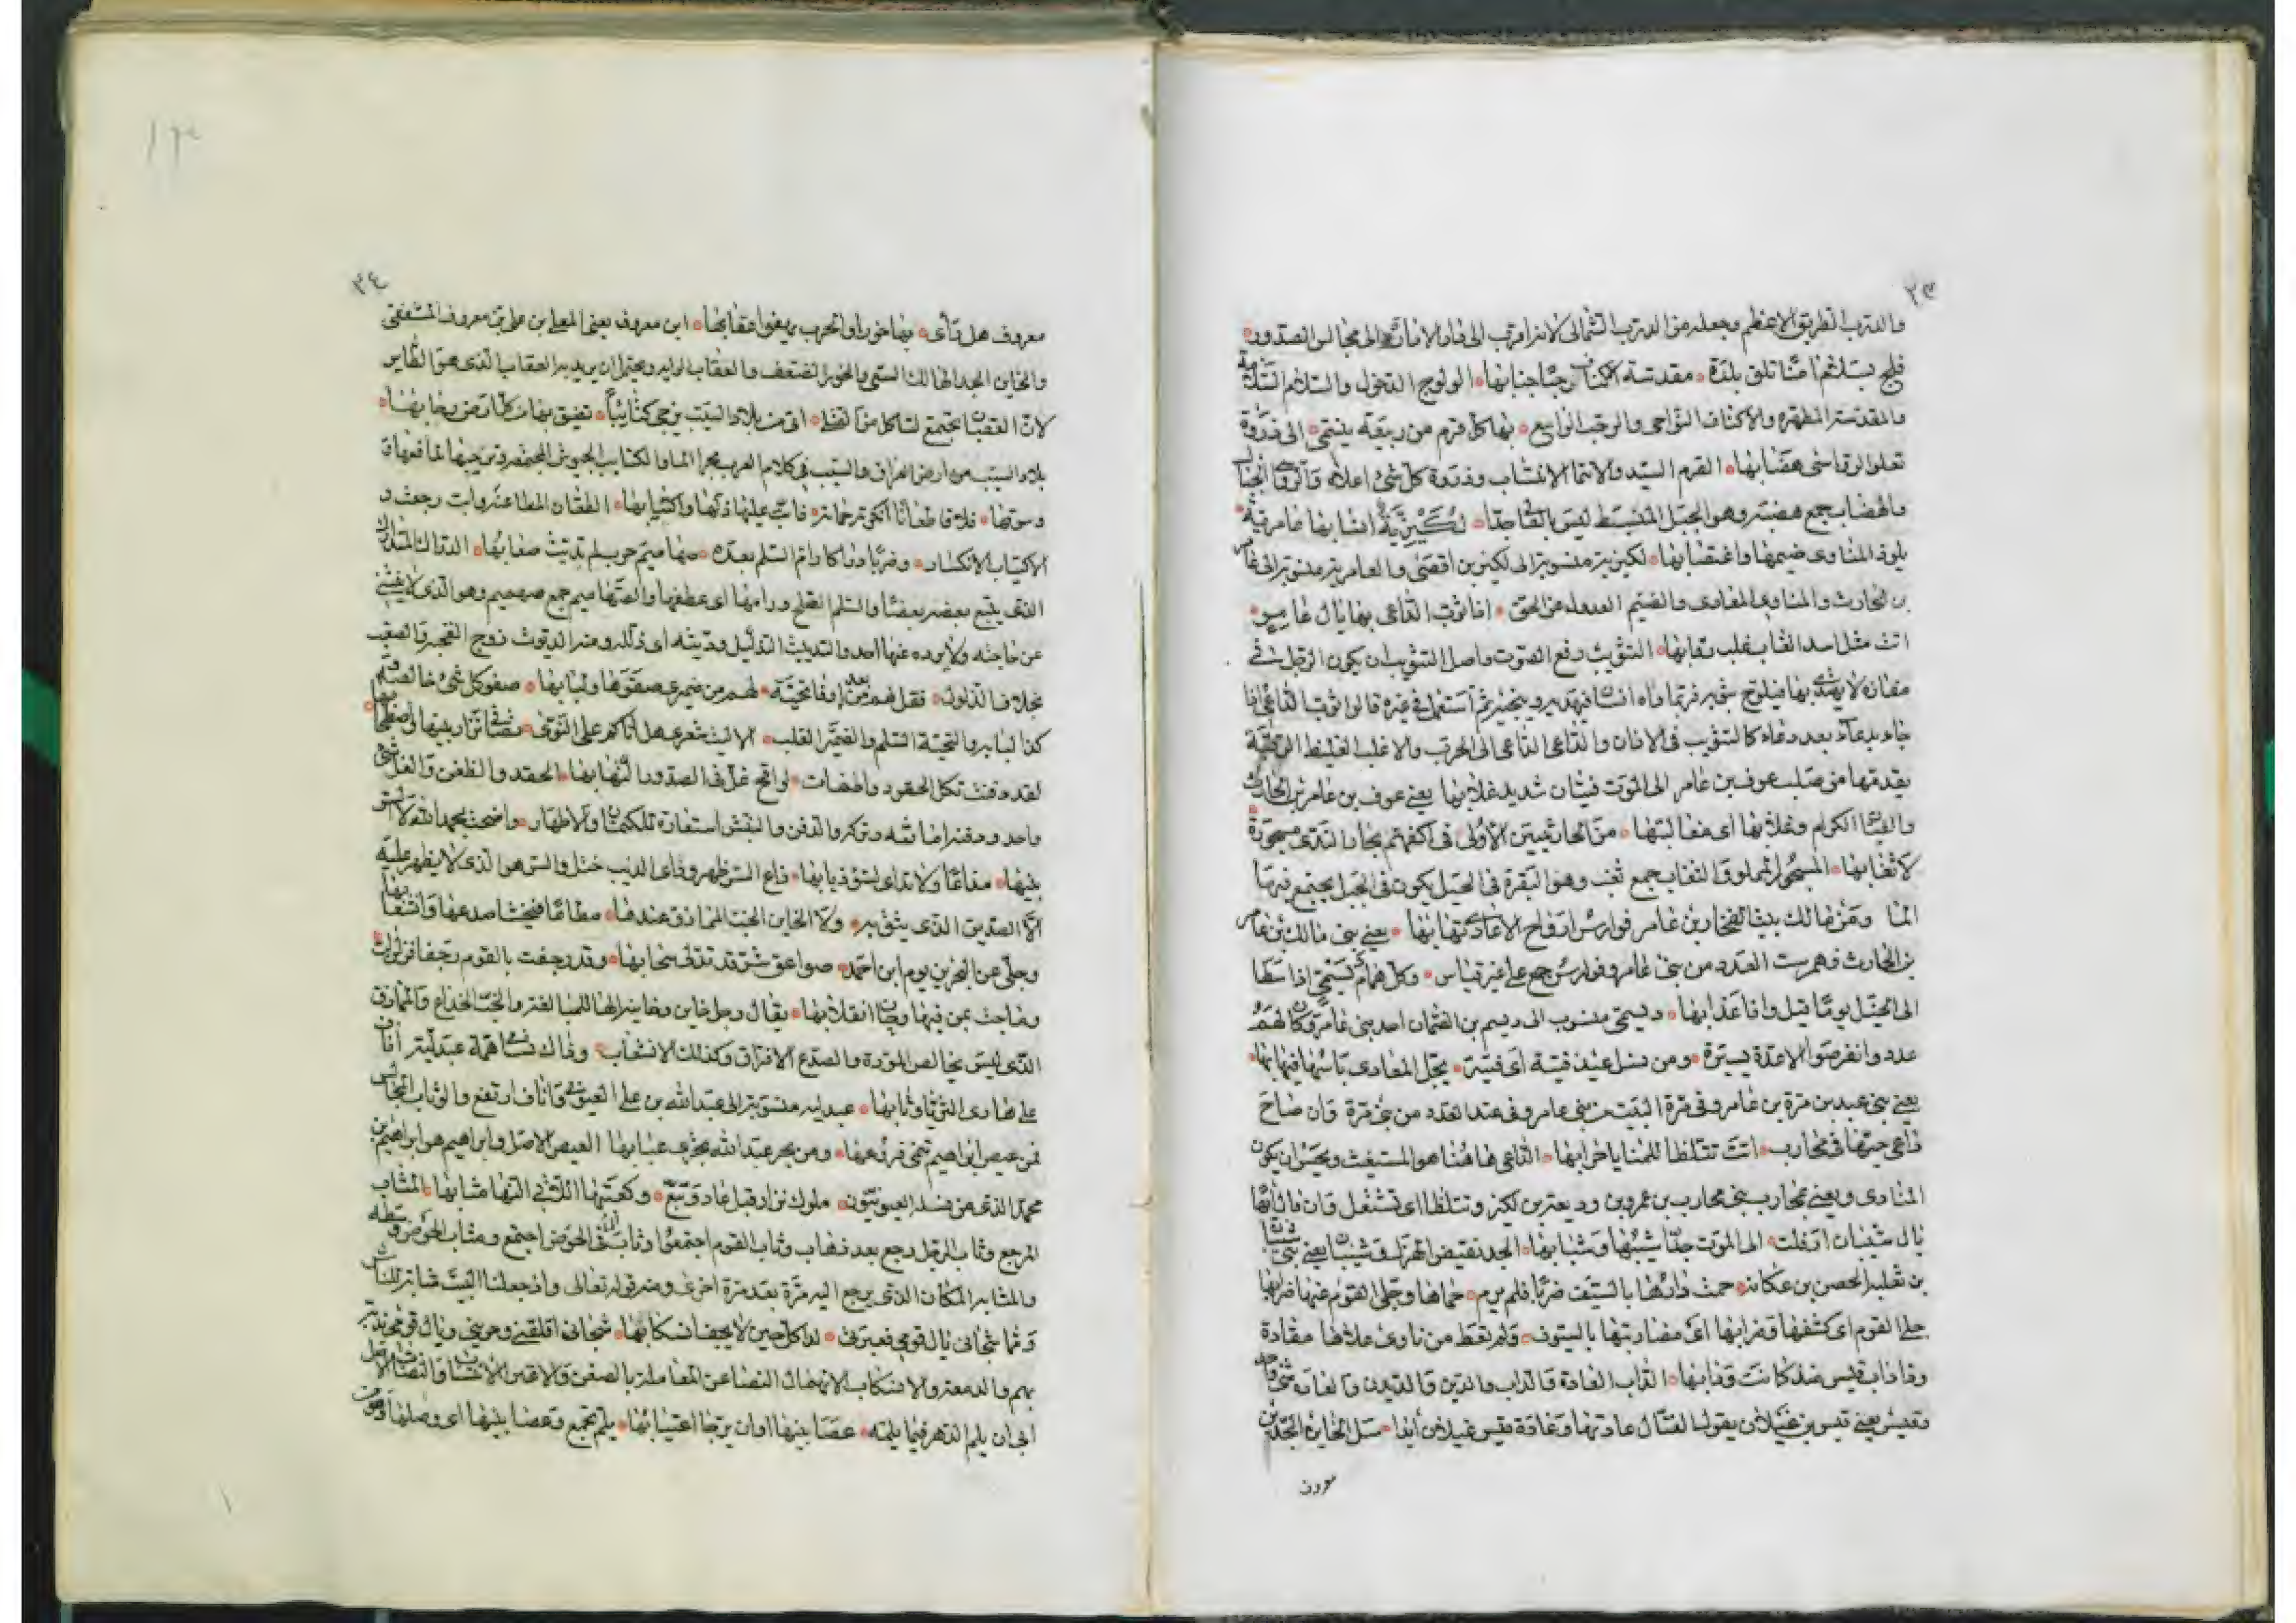 ٢٣
والدرب الطريق الاعظم وجعله من الدرب الشمالى لانه اقرب الى دار الامارة الى مجالس الصدور
فلج بسلثم امنا تلق بلدة مقدسة اكنان رحبا جنابها الولوج الدخول والسلثم
والمقدسة المطهرة والاكناف النواحى والرحب الواسع بها كل قرم من ربيعة ينتمى الى ذروة
تعلو الرواسى هضابها القرم السيد والانتما الانتساب وذروة كل شئ اعلاه والرواسى الجبال
والهضاب جمع هضبة وهو الجبل المنبسط ليس بالعالى جدا لكيزية انسابها عامرية
يلوذ المناوى ضيمها واغتصابها لكيزية منسوبة الى لكيز بن اقصى والعامرية منسوبة الى عامر
بن الحارث والمناوى المعادى والضيم العدول عن الحق اذا ثوب الداعى بها يال عامر
اتت مثل اسد الغاب غلب رقابها التثويب رفع الصوت واصل التثويب ان يكون الرجل فى
مفازة لا يهتدى بها فيلوح بثوبه فربما راه انسان فيهديه ويجيره ثم استعمل فى غيره قالوا ثوب الداعى اذا
جاء بدعاء بعد دعاء كالتثويب فى الاذان والداعى الداعى الى الحرب والاغلب الغليظ الرقبة
يقدمها من صلب عوف بن عامر الى الموت فتيان شديد غلابها يعنى عوف بن عامر بن الحارث
والفتيان الكرام وغلابها اى مغالبتها من الحارثيين الاولى فى اكفهم بحار الندى مسجورة
لا ثغابها المسجور المملو والثغاب جمع ثغب وهو البقرة فى الجبل يكون فى الجبل يجتمع فيها
الما ومن مالك بيت الفخار بن عامر فوارس ارواح الاعادى نهابها يعنى بنى مالك بن عامر
بن الحارث وهم بيت العدد من بنى عامر وفوارس جمع على غير قياس وكل همام ديسمى اذا سطا
الى الخيل يوما قيل وافا عذابها وديسمى منسوب الى ديسم بن النعمان احد بنى عامر وكان لهم
عدد وانقرضوا الا عدة يسيرة ومن نسل عبد فتية اى فتية يجل المعادى باسها فيهابها
يعنى بنى عبد بن مرة بن عامر وفى مرة البيت من بنى عامر وفى عبد العدد من بنى مرة وان صاح
داعى حيها فى محارب اتت تتلظا للمنايا حرابها الداعى هاهنا هو المستغيث ويحسن ان يكون
المنادى ويعنى بمحارب بنى محارب بن عمرو بن وديعة بن لكيز وتتلظا اى تشتعل وان قال
يال شيبان ارفلت الى الموت جدا شيبها وشبابها الجد نقيض الهزل وشيبان يعنى بنى شيبان
بن ثعلبة الحصن بن عكابة حمت دارها بالسيف ضربا فلم يرم حماها وجلى القوم عنها ضرابها
جلى القوم اى كشفها وضرابها اى مضاربتها بالسيوف ولم تعط من ناوى علاها مقادة
وذا داب قيس منذ كانت ودابها الداب العادة والداب والدين والديدن والعادة شئ واحد
وقيس يعنى قيس بن عيلان يقول القتال عادتها وعادة قيس عيلان ابدا سل الخاين الجد بن
معروف
٢٤
معروف هل تاى بها حوراو الحرب يهفو اعقابها ابن معروف يعنى المعلى بن على بن معروف المشفقى
والخاين الجد الهالك السئ والخور الضعف والعقاب الراية ويحتمل ان يريد به العقاب الذى هو الطاير
لان العقبان تجتمع لتاكل من القتلى اتى من بلاد السيب يزجى كتائبا تضيق بها من كل ارض رحابها
بلاد السيب من ارض العراق والسيب فى كلام العرب مجرا الما والكتايب الجيوش المجتمعة
وسوقها فلاقا طعانا انكرته حماته فابت عليها ذلها واكتيابها الطعان المطاعنة وابت رجعت و
الاكتياب الانكسار وضربا دراكا رام السلم بعده صهاميم حرب لم تديث صعابها الدراك المتدارك
الذى يتبع بعضه بعضا والسلم الصلح ورامها اى عطفها والصهاميم جمع صهميم وهو الذى لا ينثنى
عن حاجته ولا يرده عنها احد والتديث التذليل وديثه اى ذلله ومنه الديوث زوج القحبة والصعب
بخلاف الذلول فقل لهم من بعد اوفا تحية لهم من ضميرى صفوها ولبابها صفو كل شئ خالصه
كذا لبابه والتحية السلم والضمير القلب الا ليت شعرى هل اتاكم على النوى
لقد دفنت تلك الحقود واطفات لواقح غل فى الصدور التهابها الحقد والظغن والغل شئ
واحد ودفنها اماتته وتركه والدفن والنبش استعارة للكتمان والاظهار واضحت بحمد الله لا
بينها مذاعا ولا تداى لسؤ ذيابها ذاع السر ظهر وداى الذيب ختل والسر هو الذى لا يظهر عليه
الا الصديق الذى يثق به ولا الخاين الخب المماذق عندها مطاعا فيخشا صدعها وانشعابها
وجلى عن البحرين يوم ابن احمد صواعق شر قد تدلى سحابها وقد رجفت بالقوم رجفا فزلزلت
ومادت بمن فيها وحان انقلابها يقال رجل خاين وخاينة الها للمبالغة والخب الخداع والمماذق
الذى ليس بخالص المودة والصدع الافتراق وكذلك الانشعاب وذاك نشا همة عبدلية اناف
على هادى الثريا وثابها عبدلية منسوبة الى عبد الله بن على العيونى واناف ارتفع والوثاب
فمن عيص ابراهيم تنمى فروعها ومن بحر عبد الله يجرى عبابها العيص الاصل وابراهيم هو ابراهيم بن
محمد الذى من نسله العيونيون ملوك نزار قبل عاد وتبع وكعبتها اللاتى اليها مثابها المثاب
المرجع وثاب الرجل رجع بعد ذهاب وثاب القوم اجتمعوا وثاب الما فى الحوض اجتمع ومثاب الحوض وسطه
والمثابة المكان الذى يرجع اليه مرة بعد مرة اخرى ومنه قوله تعالى واذ جعلنا البيت مثابة للناس
ومما شجانى يال قومى فعبرتى لها كل حين لا يجف انسكابها شجانى اقلقنى وحزننى ويال قومى
بهم والدمعة والانسكاب الانهمال
ابى ان يلم الدهر فيما يلمه عصا بينها او ان يرجا اعتيابها يلم يجمع وعصا بينها اى وصلها